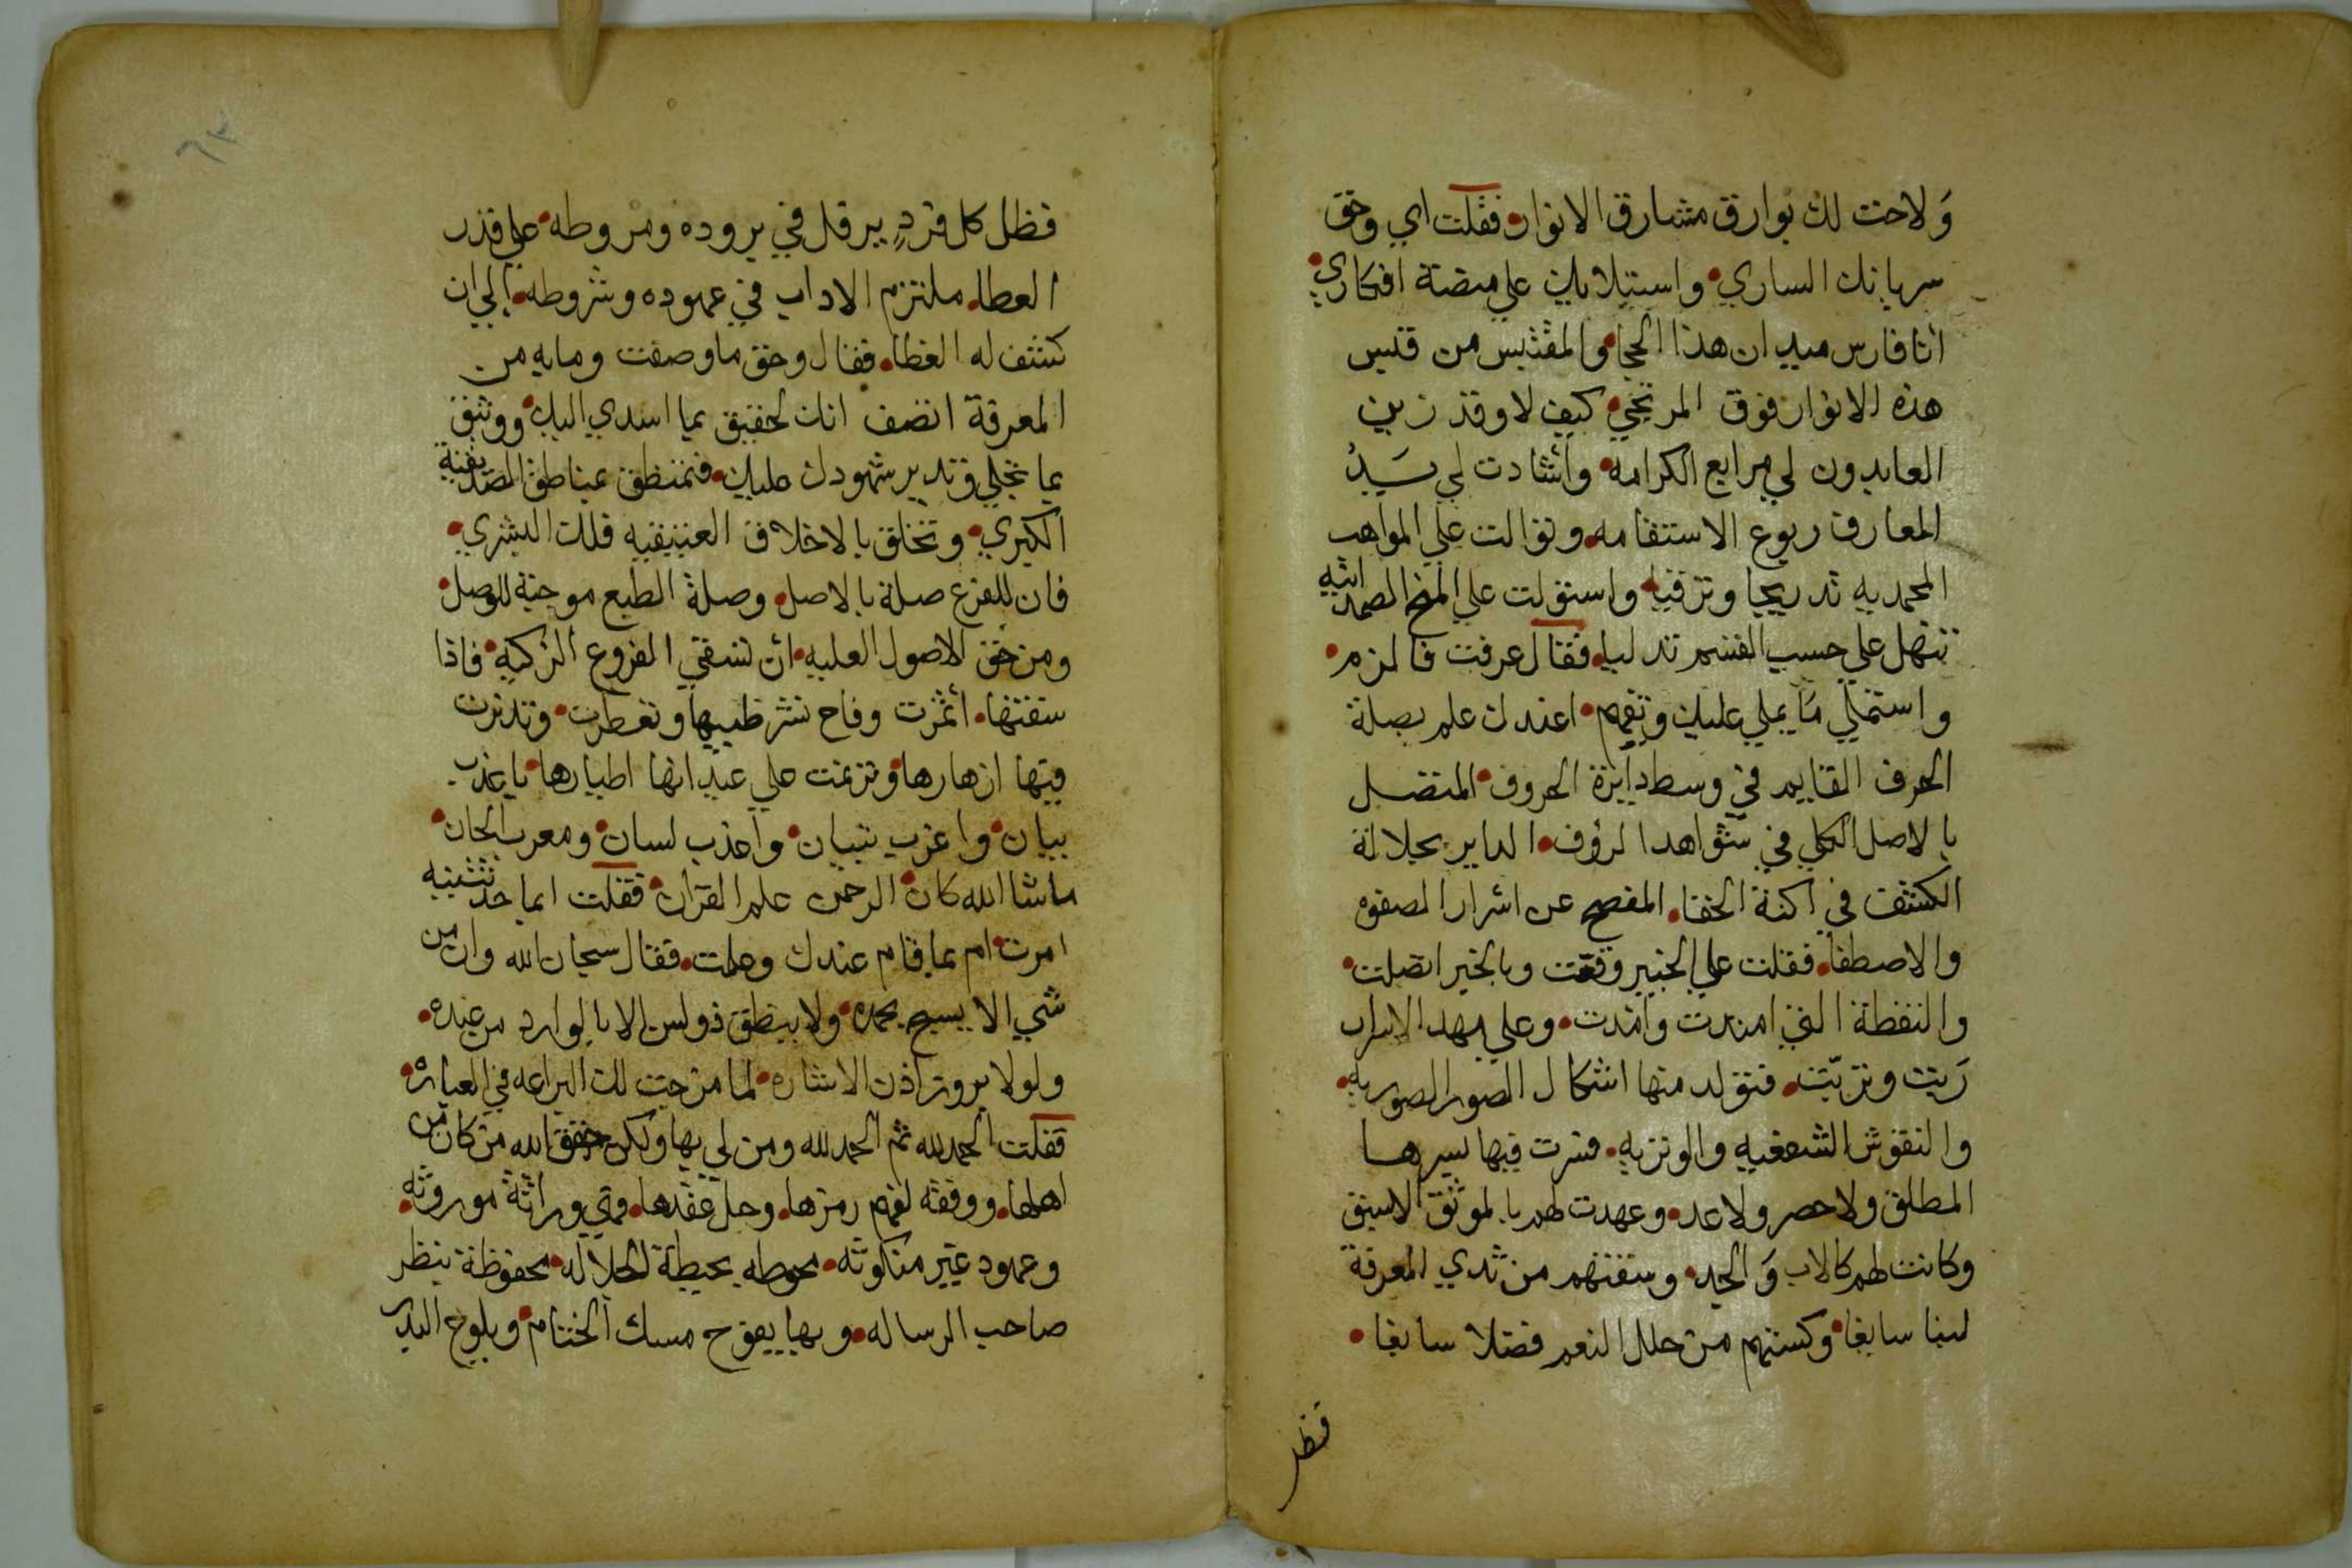 ولاحت لك بوارق مشارق الانوار فقلت اي وحق
سريانك الساري واستيلائك علي منصة افكاري
انا فارس ميدان هذا الحجا والمقتبس من قبس
هذه الانوار فوق المرتجي كيف لا وقد زين
العابدون لي مرابع الكرامه وأشادت لي سَيِّدُ
المعارف ربوع الاستقامه وتوالت علي المواهب
المحمديه تدريجا وترقيا واستولت علي المنح الصمدانيه
تنهل علي حسب القسم تدليا فقال عرفت فالزم
واستملي ما يملي عليك وتفهم اعندك علم بصلة
الحرف القايم في وسط دايرة الحروف المتصل
بالاصل الكلي في شواهد الرؤف الداير بجلالة
الكشف في اكنة الخفا المفصح عن اسرار الصفوه
والاصطفا فقلت علي الخبير وقعت وبالخبر اتصلت
والنقطة التي امتدت وامدت وعلي مهد الاسرار
رَبت وتربّت فتولد منها اشكال الصور الصوريه
والنقوش الشفعيه والوتريه فسرت فيها بسرها
المطلق ولا حصر ولا عد وعهدت لهم بالموثق الاسبق
وكانت لهم كالاب وَالجد وسقتهم من ثدي المعرفة
لبنا سابغا وكستهم من حلل النعم فضلا سابغا
فظل
فظل كل فردٍ يرفل في بروده ومروطه علي قدر
العطا ملتزم الاداب في عهوده وشروطه الي ان
كشف له الغطا فقال وحق ما وصفت وما به من
المعرفة اتصف انك لحقيق بما اسدي اليك ووثيق
بما تجلي وتدير شهودك عليك فتمنطق بمناطق الصديقية
الكبري وتخلق بالاخلاق العتيقيه فلك البشري
فان للفرع صلة بالاصل وصلة الطبع موجبة للوصل
ومن حق الاصول العليه ان تسقي الفروع الزكيه فاذا
سقتها أثمرت وفاح نشر طيبها وتعطرت وتدثرت
فيها ازهارها وترنمت علي عيدانها اطيارها باعذب
بيان واعرب تبيان واعذب لسان ومعرب الحان
ماشا الله كان الرحمن علم القران فقلت ابما حدثتنيه
امرت ام بما قام عندك وعلمت فقال سبحان الله وان من
شي الا يسبح بحمده ولا ينطق ذو لسن الا بالوارد من عبده
ولولا بروز اذن الاشاره لما مزجت لك البراعه في العباره
فقلت الحمد لله ثم الحمد لله ومن لي بها ولكن حقق الله من كان من
اهلها ووفقه لفهم رمزها وحل عقدها وهي وراثة موروثه
وعهود غير منكوثه محوطه بحيطة الجلاله محفوظة بنظر
صاحب الرساله وبها يفوح مسك الختام ويلوح البدر